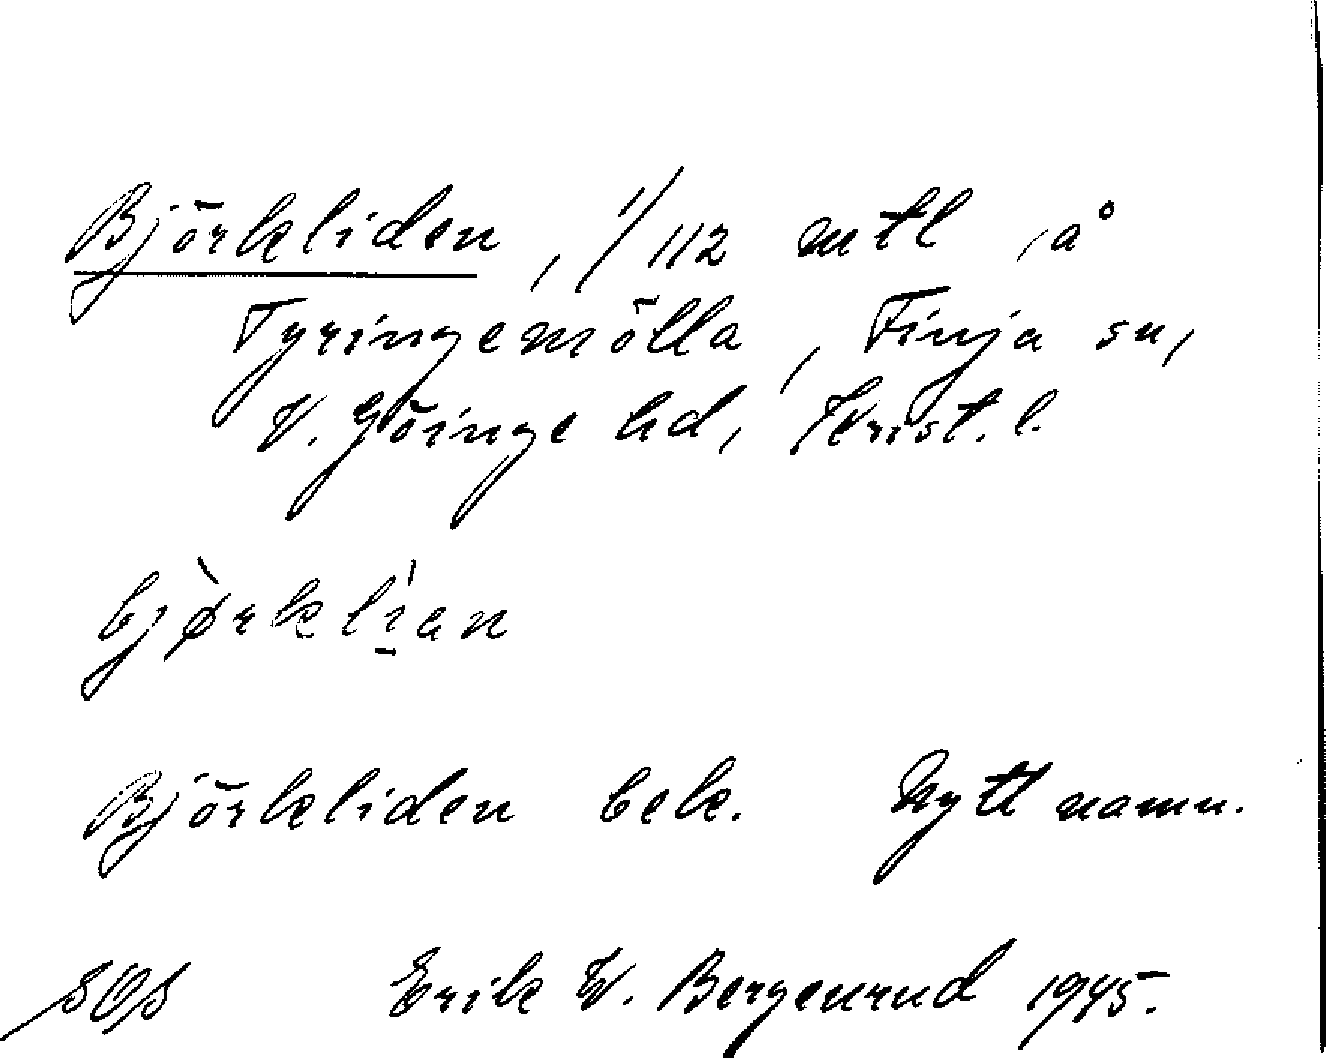 Björkliden, 1/112 mtl, å
Tyringemölla, Finja sn,
V. Göinge hd, Krist. l.
bjø̀rklí̱an
Björkliden bek. Nytt namn.
SOS Erik W. Bergenrud 1945.